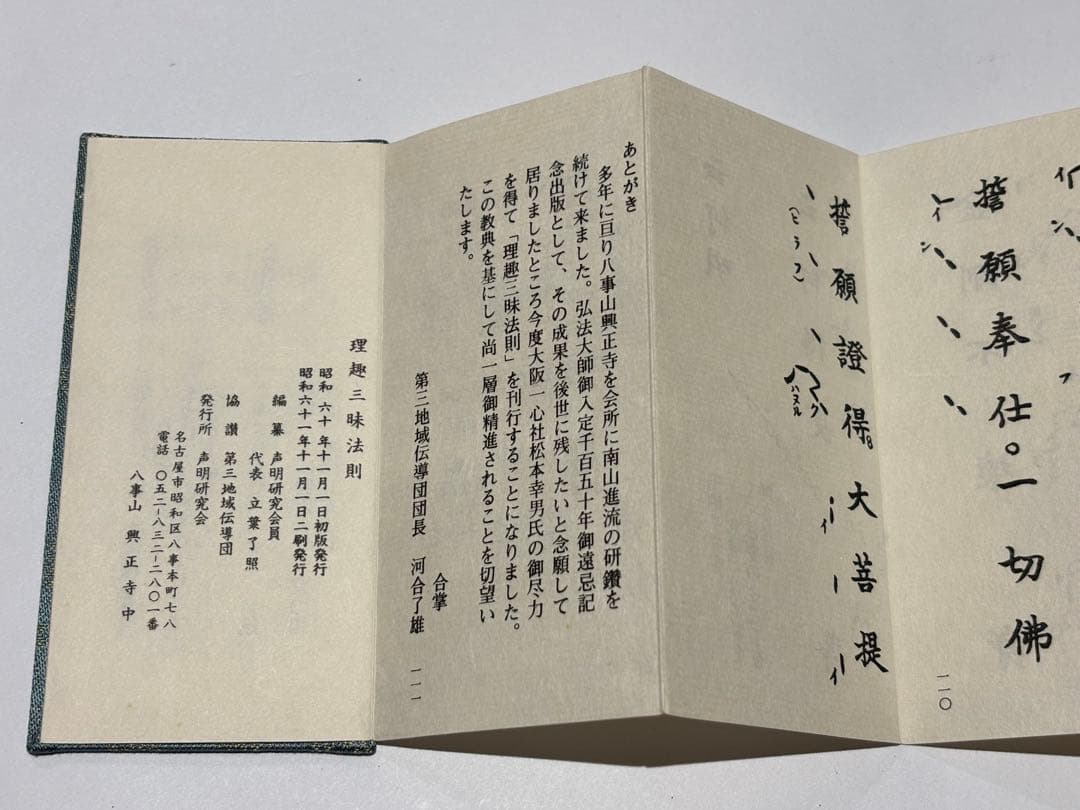 誓願奉仕。一切佛
一一〇
誓願證得。大菩提
あとがき
多年に亘り八事山興正寺を会所に南山進流の研鑽を
続けて来ました。弘法大師御入定千百五十年御遠忌記
念出版として、その成果を後世に残したいと念願して
居りましたところ今度大阪一心社松本幸男氏の御尽力
を得て「理趣三昧法則」を刊行することになりました。
この教典を基にして尚一層御精進されることを切望い
たします。
合掌
第三地域伝導団団長　河合了雄
一一一
理趣三昧法則
昭和六十年十一月一日初版発行
昭和六十一年十一月一日二刷発行
編纂　声明研究会員
代表　立葉了照
協讃　第三地域伝導団
発行所　声明研究会
名古屋市昭和区八事本町七八
電話　〇五二-八三二-二八〇一番
八事山　興正寺中